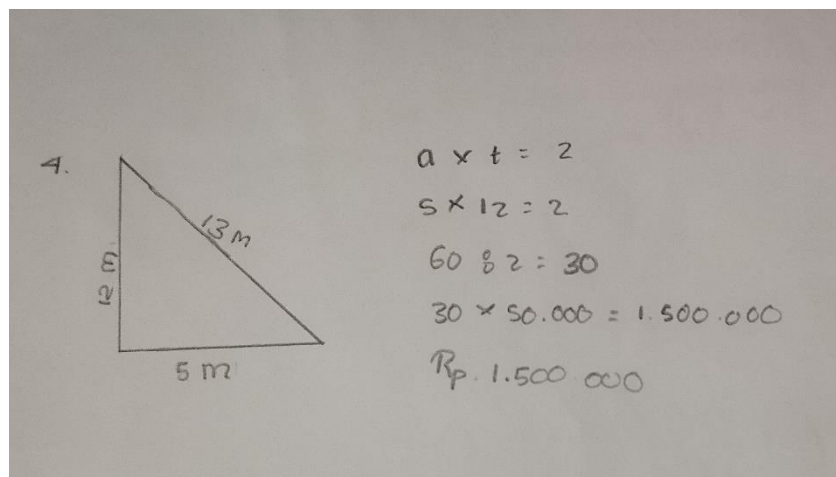 4.
12 m
13 m
5 m
a x t = 2
5 x 12 = 2
60 : 2 = 30
30 x 50.000 = 1.500.000
Rp. 1.500.000